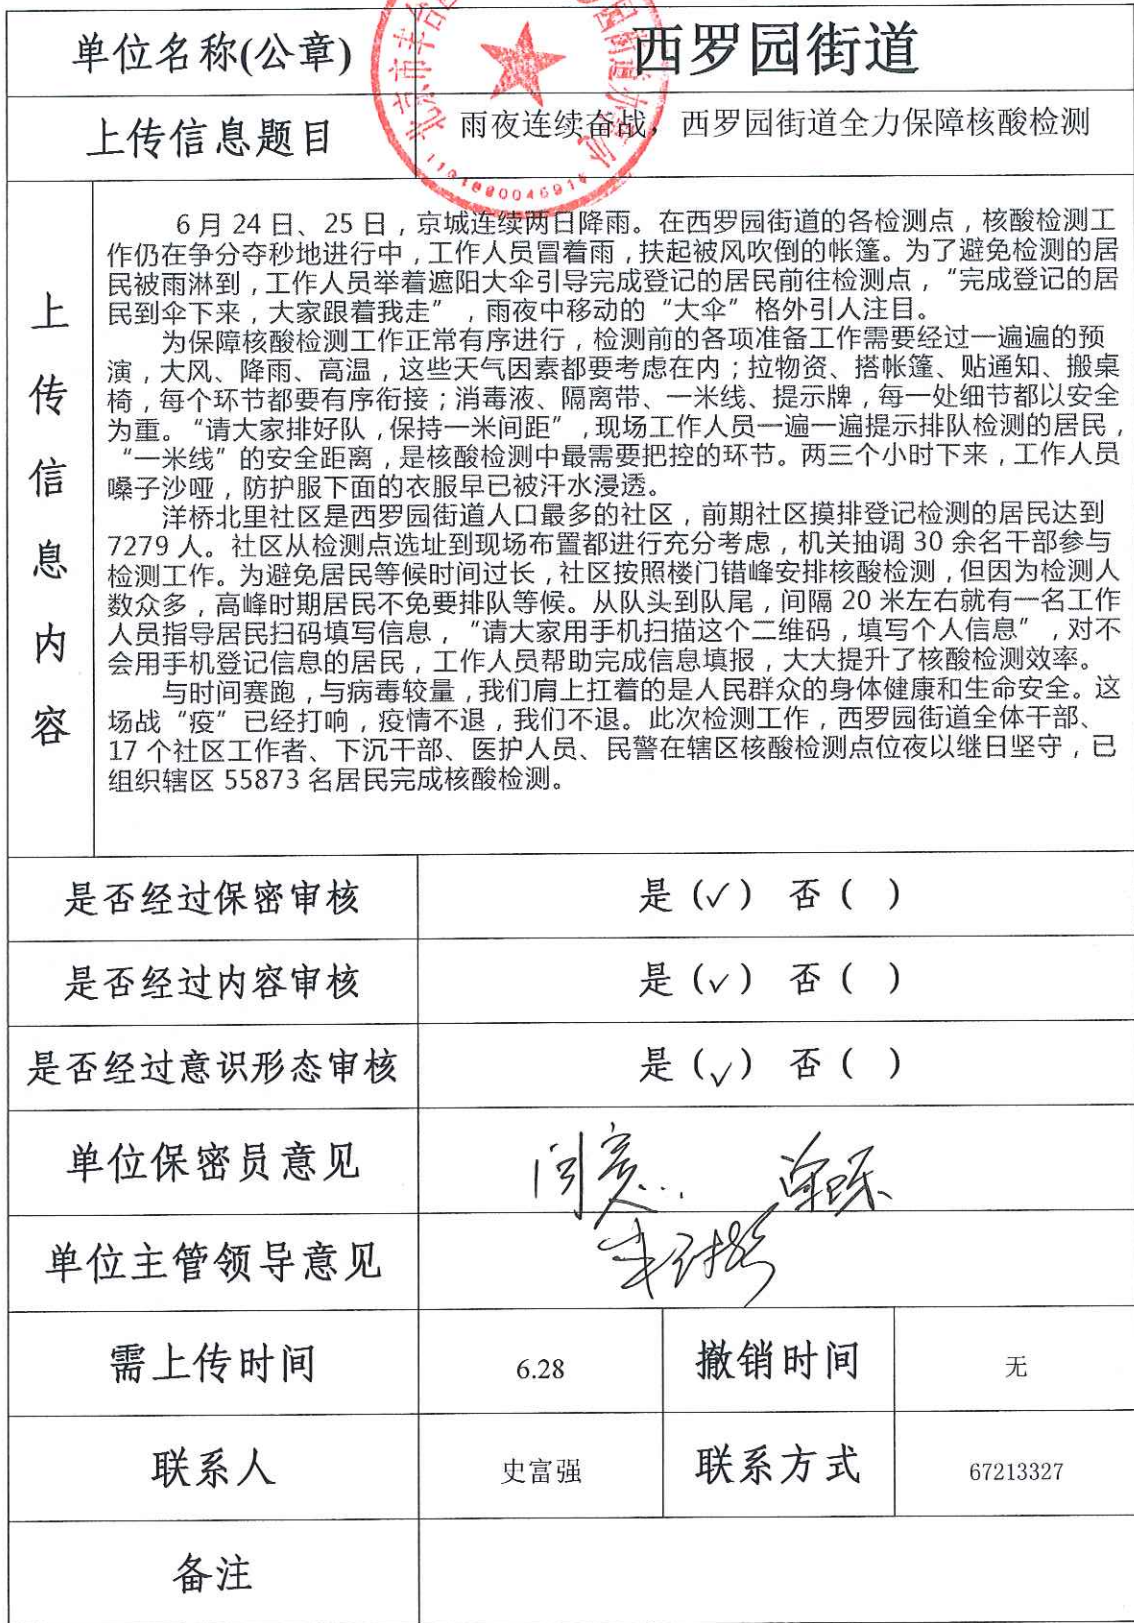 单位名称(公章)
西罗园街道
上传信息题目
雨夜连续奋战，西罗园街道全力保障核酸检测
上传信息内容
6月24日、25日，京城连续两日降雨。在西罗园街道的各检测点，核酸检测工
作仍在争分夺秒地进行中，工作人员冒着雨，扶起被风吹倒的帐篷。为了避免检测的居
民被雨淋到，工作人员举着遮阳大伞引导完成登记的居民前往检测点，“完成登记的居
民到伞下来，大家跟着我走”，雨夜中移动的“大伞”格外引人注目。
为保障核酸检测工作正常有序进行，检测前的各项准备工作需要经过一遍遍的预
演，大风、降雨、高温，这些天气因素都要考虑在内；拉物资、搭帐篷、贴通知、搬桌
椅，每个环节都要有序衔接；消毒液、隔离带、一米线、提示牌，每一处细节都以安全
为重。“请大家排好队，保持一米间距”，现场工作人员一遍一遍提示排队检测的居民，
“一米线”的安全距离，是核酸检测中最需要把控的环节。两三个小时下来，工作人员
嗓子沙哑，防护服下面的衣服早已被汗水浸透。
洋桥北里社区是西罗园街道人口最多的社区，前期社区摸排登记检测的居民达到
7279人。社区从检测点选址到现场布置都进行充分考虑，机关抽调30余名干部参与
检测工作。为避免居民等候时间过长，社区按照楼门错峰安排核酸检测，但因为检测人
数众多，高峰时期居民不免要排队等候。从队头到队尾，间隔20米左右就有一名工作
人员指导居民扫码填写信息，“请大家用手机扫描这个二维码，填写个人信息”，对不
会用手机登记信息的居民，工作人员帮助完成信息填报，大大提升了核酸检测效率。
与时间赛跑，与病毒较量，我们肩上扛着的是人民群众的身体健康和生命安全。这
场战“疫”已经打响，疫情不退，我们不退。此次检测工作，西罗园街道全体干部、
17个社区工作者、下沉干部、医护人员、民警在辖区核酸检测点位夜以继日坚守，已
组织辖区55873名居民完成核酸检测。
是否经过保密审核
是（✓） 否（ ）
是否经过内容审核
是（✓） 否（ ）
是否经过意识形态审核
是（✓） 否（ ）
单位保密员意见
单位主管领导意见
需上传时间
6.28
撤销时间
无
联系人
史富强
联系方式
67213327
备注